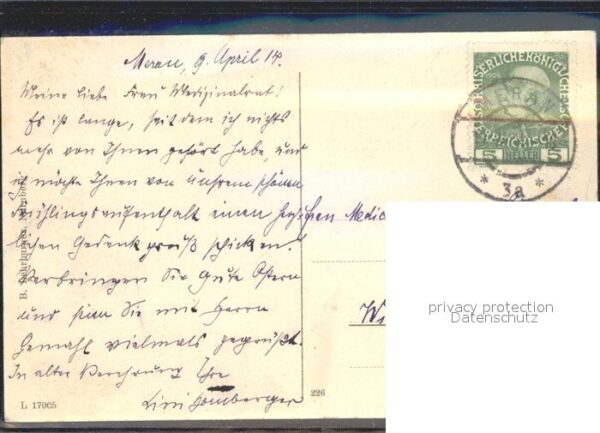 Meran, 9. April 14.
Meine liebe Frau Medizinalrat!
Es ist lange, seit dem ich nichts
mehr von Ihnen gehört habe, und
ich möchte Ihnen von unserem schönen
Frühlingsaufenthalt einen herz-
lichen Gedenkgruß schicken.
Verbringen Sie gute Ostern
und seien Sie mit Herrn
Gemahl vielmals gegrüßt.
In alter Verehrung Ihre
Lini Homberger
Medic
KAISERLICHE KÖNIGLICHE
ÖSTERREICHISCHE
5 HELLER 5
MERAN
* 3a *
L 17065
226
privacy protection
Datenschutz